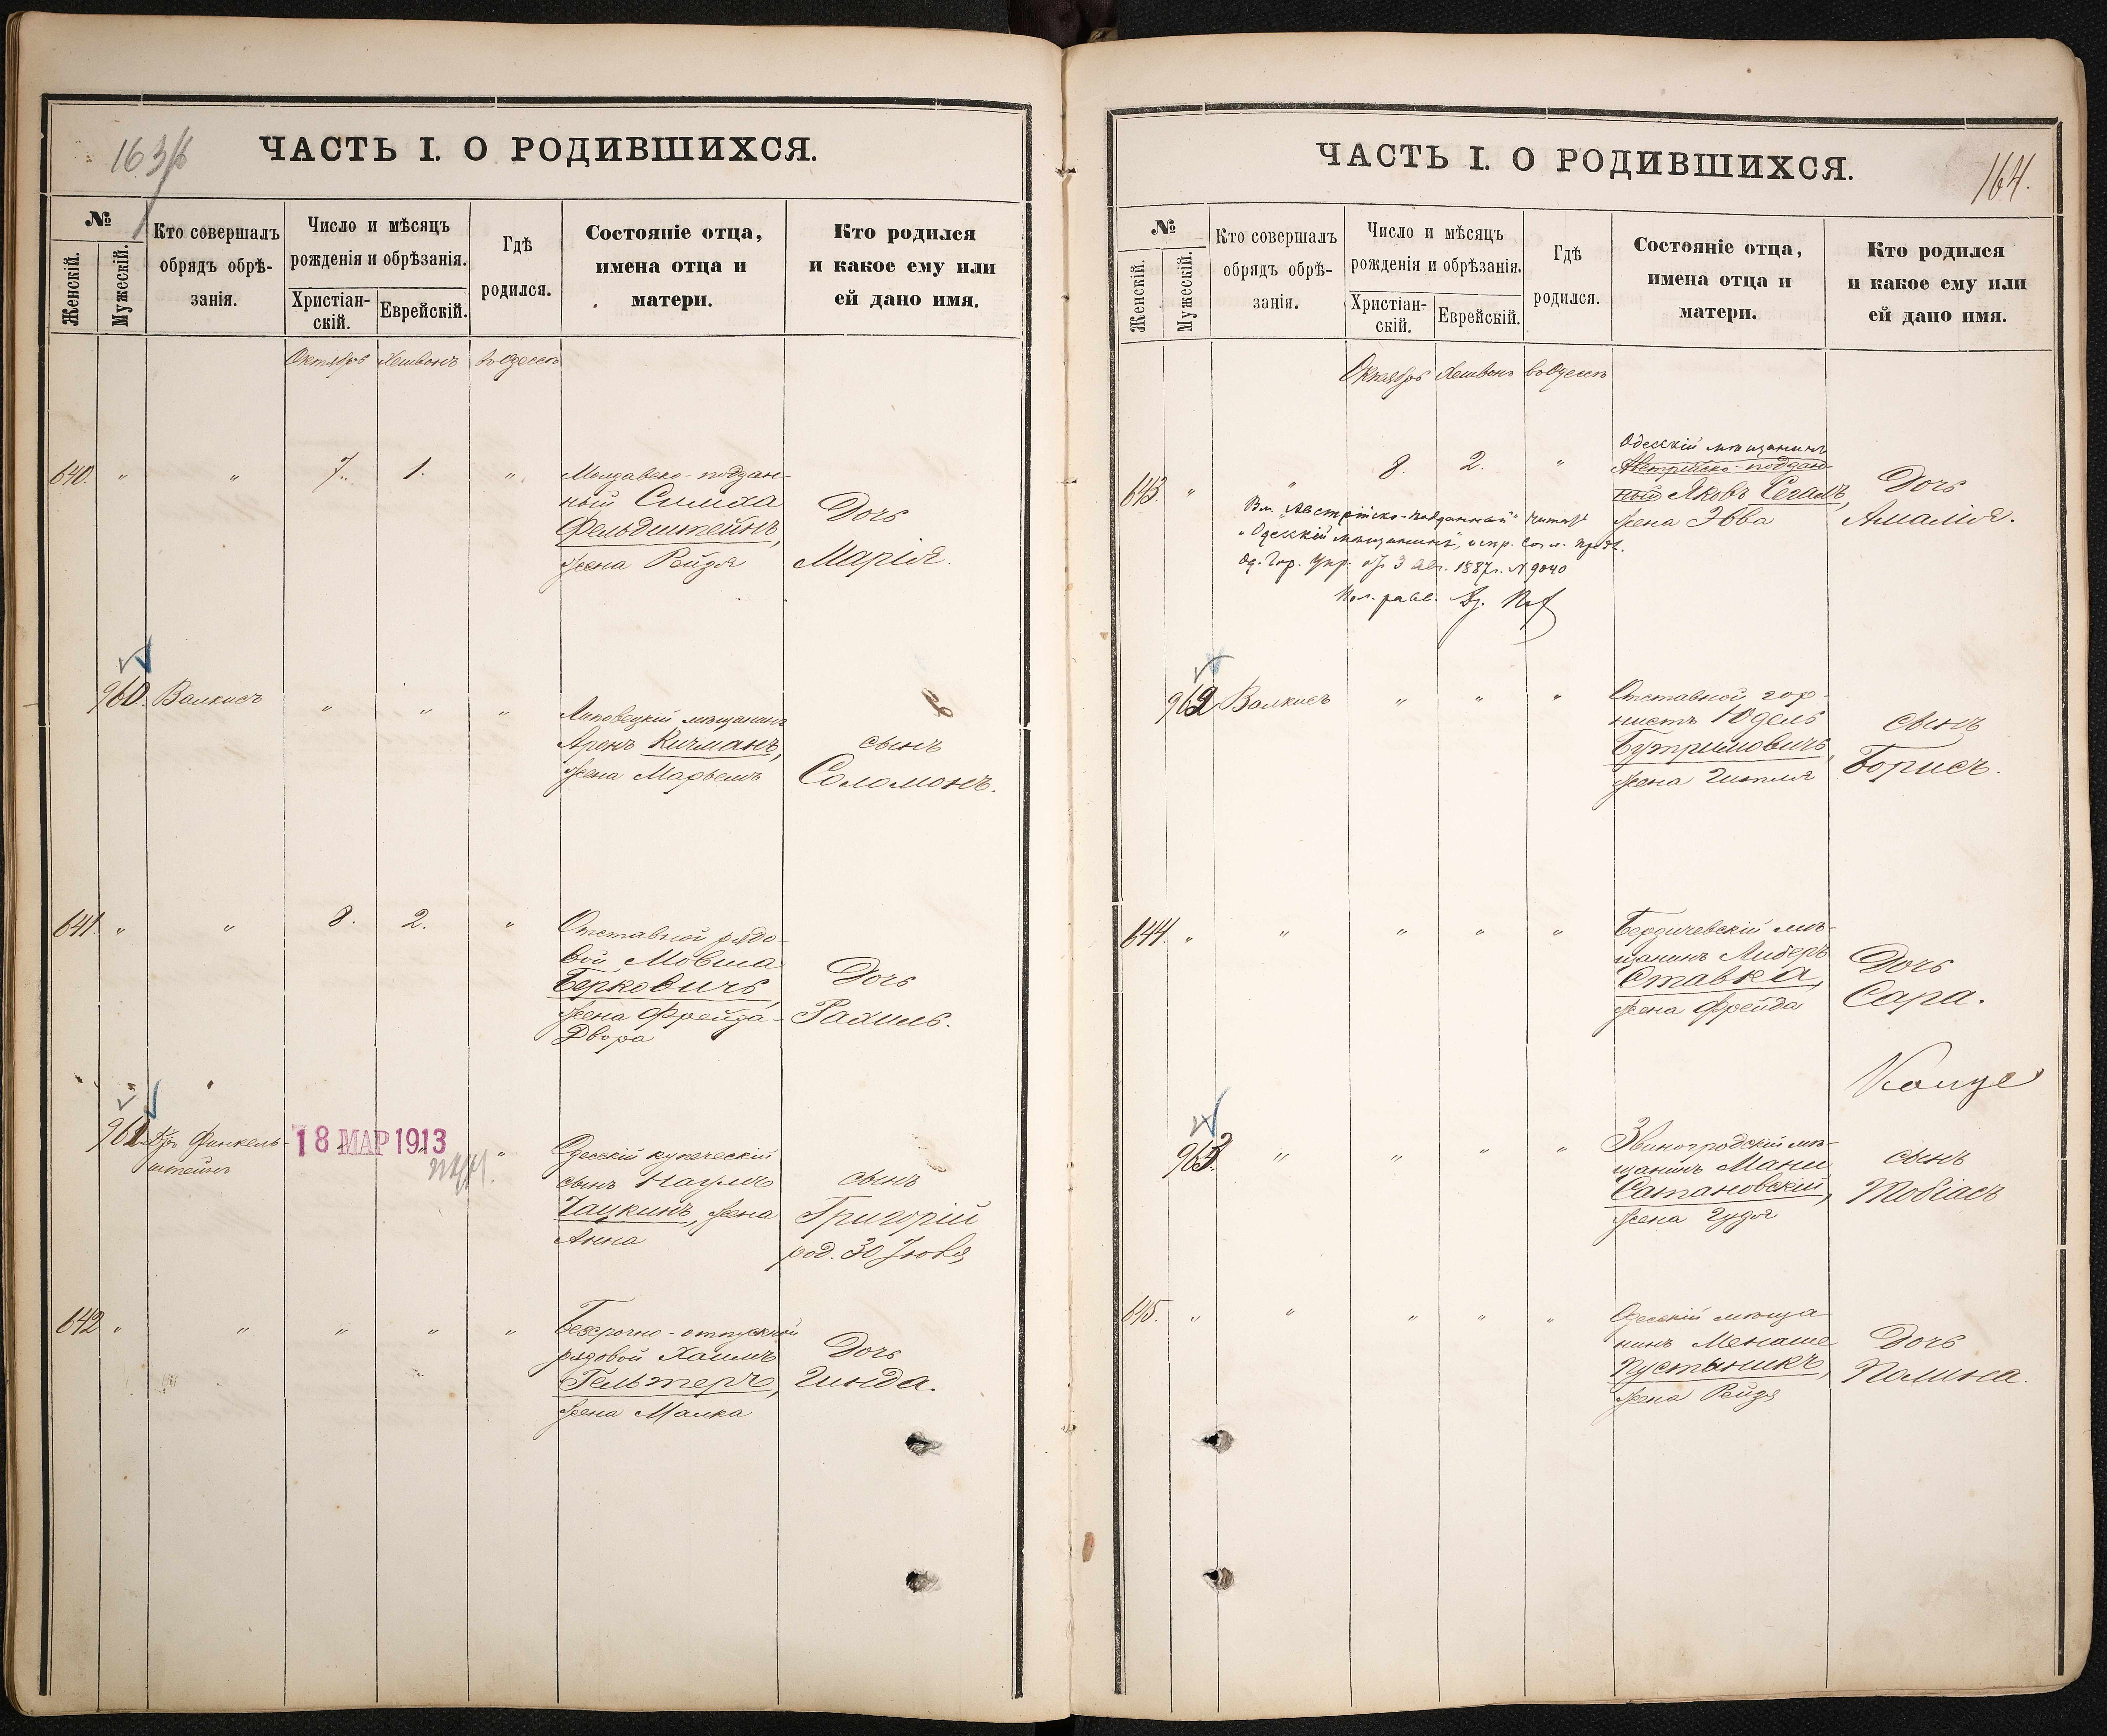 163/б
ЧАСТЬ I. О РОДИВШИХСЯ.
№
Женскій.
Мужескій.
Кто совершалъ
обрядъ обрѣ-
занія.
Число и мѣсяцъ
рожденія и обрѣзанія.
Христіан-
скій.
Еврейскій.
Гдѣ
родился.
Состояніе отца,
имена отца и
матери.
Кто родился
и какое ему или
ей дано имя.
Октябрь Хешвонъ въ Одессѣ
640. " " 7. 1. "
Молдавско-поддан-
ный Симха
Фельдштейнъ,
жена Рейзя
Дочь
Марія.
960. Валкисъ " " "
Липовецкій мѣщанинъ
Аронъ Кичманъ,
жена Марьемъ
сынъ
Соломонъ.
641. " " 8. 2. "
Отставной рядо-
вой Мовша
Берковичъ,
жена Фрейда-
Двора
Дочь
Рахиль.
961 Дръ Финкель-
штейнъ
18 МАР 1913
"
Одесскій купеческій
сынъ Наумъ
Чацкинъ, жена
Анна
сынъ
Григорій
род. 30 Іюля
642 " " " " "
Безсрочно-отпускной
рядовой Хаимъ
Гельтеръ,
жена Малка
Дочь
Гинда.
164.
ЧАСТЬ I. О РОДИВШИХСЯ.
№
Женскій.
Мужескій.
Кто совершалъ
обрядъ обрѣ-
занія.
Число и мѣсяцъ
рожденія и обрѣзанія.
Христіан-
скій.
Еврейскій.
Гдѣ
родился.
Состояніе отца,
имена отца и
матери.
Кто родился
и какое ему или
ей дано имя.
Октябрь Хешвонъ въ Одессѣ
643. " " 8. 2. "
Одесскій мѣщанинъ
Австрійско-поддан-
ный Яковъ Сегалъ,
жена Эвва
Дочь
Амалія.
Вм. "Австрійско-подданный" читать
"Одесскій мѣщанинъ", испр. согл. предл.
Од. Гор. Упр. отъ 3 Авг. 1887г. № 9040
962 Валкисъ " " "
Отставной гор-
нистъ Юдель
Бутримовичъ,
жена Гитля
сынъ
Борисъ.
644. " " " " "
Бердичевскій мѣ-
щанинъ Либеръ
Ставка,
жена Фрейда
Дочь
Сара.
963 " " " "
Звиногродскій мѣ-
щанинъ Мани
Сатановскій,
жена Гудя
сынъ
Тобіасъ
645. " " " " "
Одесскій мѣща
нинъ Менаше
Пустыникъ,
жена Рейзя
Дочь
Полина.